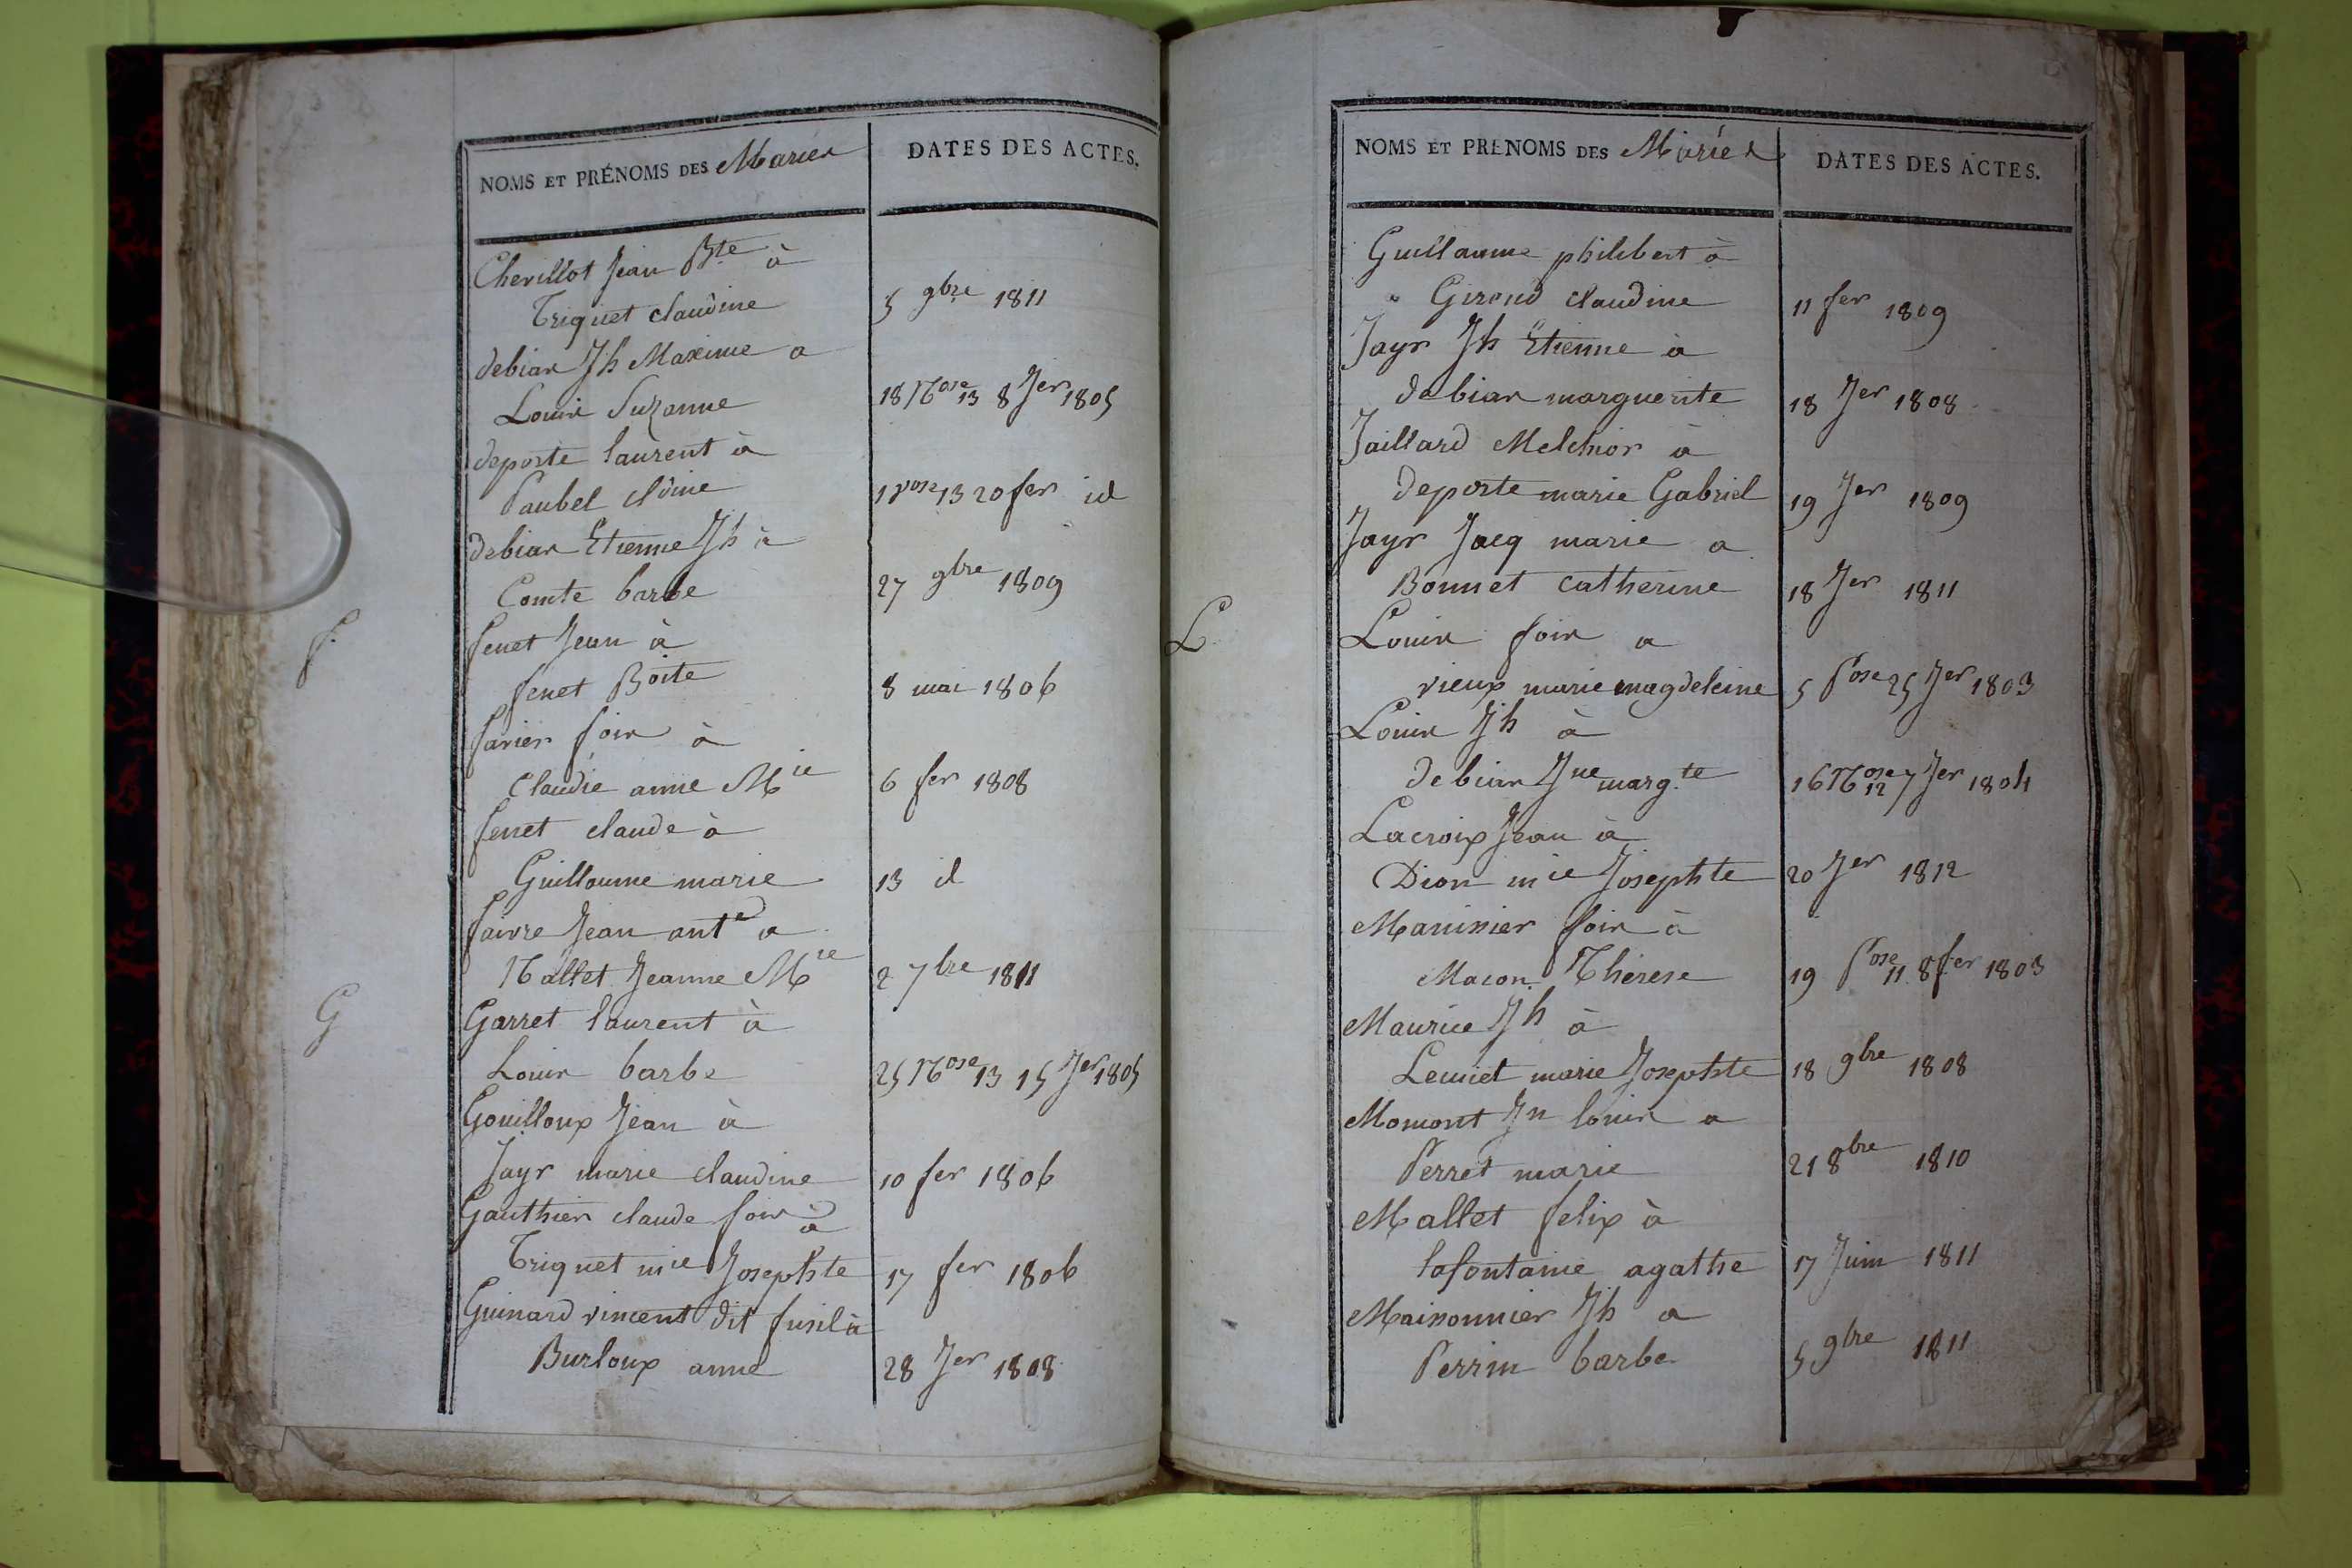 NOMS ET PRÉNOMS DES Mariés
DATES DES ACTES.
Chevillot Jean Bte à
Triquet claudine 5 9bre 1811
debiar Jh Maxime a
Louis Suzanne 18 Nose 13 8 Jer 1805
deporte laurent à
Paubel cldine 1 vose 13 20 fer id
debiar Etienne Jh à
Comte barbe 27 9bre 1809
f.
fenet Jean à
fenet Boite 8 mai 1806
farier fois à
Claudie anne Mie 6 fer 1808
fenet claude à
Guillaume marie 13 id
faivre Jean ante a
Nallet Jeanne Mie 2 7bre 1811
G
Garret laurent à
Louis barbe 25 Nose 13 15 Jer 1805
Gouilloux Jean à
Jayr marie claudine 10 fer 1806
Gauthier claude fois à
Triquet mie Josephte 17 fer 1806
Guinard vincent dit fusil à
Burloux anne 28 Jer 1808
NOMS ET PRENOMS DES Mariés
DATES DES ACTES.
Guillaume philibert à
Giroud claudine 11 fer 1809
Jayr Jh Etienne à
debiar marguerite 18 Jer 1808
Jaillard Melchior à
deporte marie Gabriel 19 Jer 1809
Jayr Jacq marie a
Bonnet catherine 18 Jer 1811
L
Louis fois a
vieux marie magdeleine 5 Pose 25 Jer 1803
Louis Jh à
debiar Jne margte 16 Nose 12 7 Jer 1804
Lacroix Jean à
Dion mie Josephte 20 Jer 1812
Manissier fois à
Macon Thérèse 19 Pose 11 8 fer 1803
Maurice Jh à
Lemiet marie Josephte 18 9bre 1808
Momont Jn louis a
Perret marie 21 8bre 1810
Mallet felix à
lafontaine agathe 17 Juin 1811
Maisonnier Jh a
Perrin barbe 5 9bre 1811